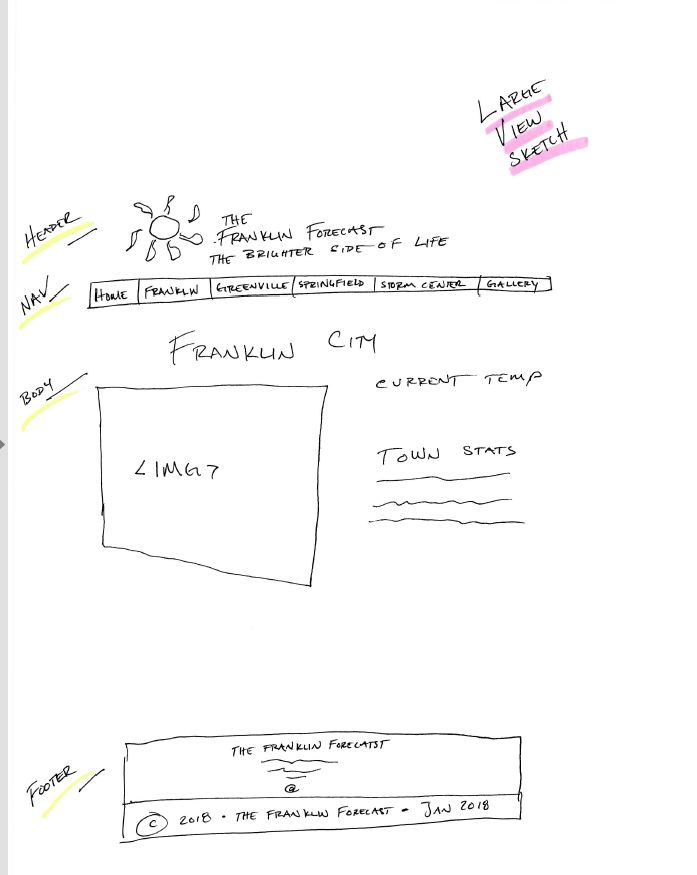 LARGE
VIEW
SKETCH
HEADER
THE
FRANKLIN FORECAST
THE BRIGHTER SIDE OF LIFE
NAV
HOME FRANKLIN GREENVILLE SPRINGFIELD STORM CENTER GALLERY
FRANKLIN CITY
BODY
CURRENT TEMP
<IMG>
TOWN STATS
THE FRANKLIN FORECATST
@
FOOTER
© 2018 • THE FRANKLIN FORECAST - JAN 2018